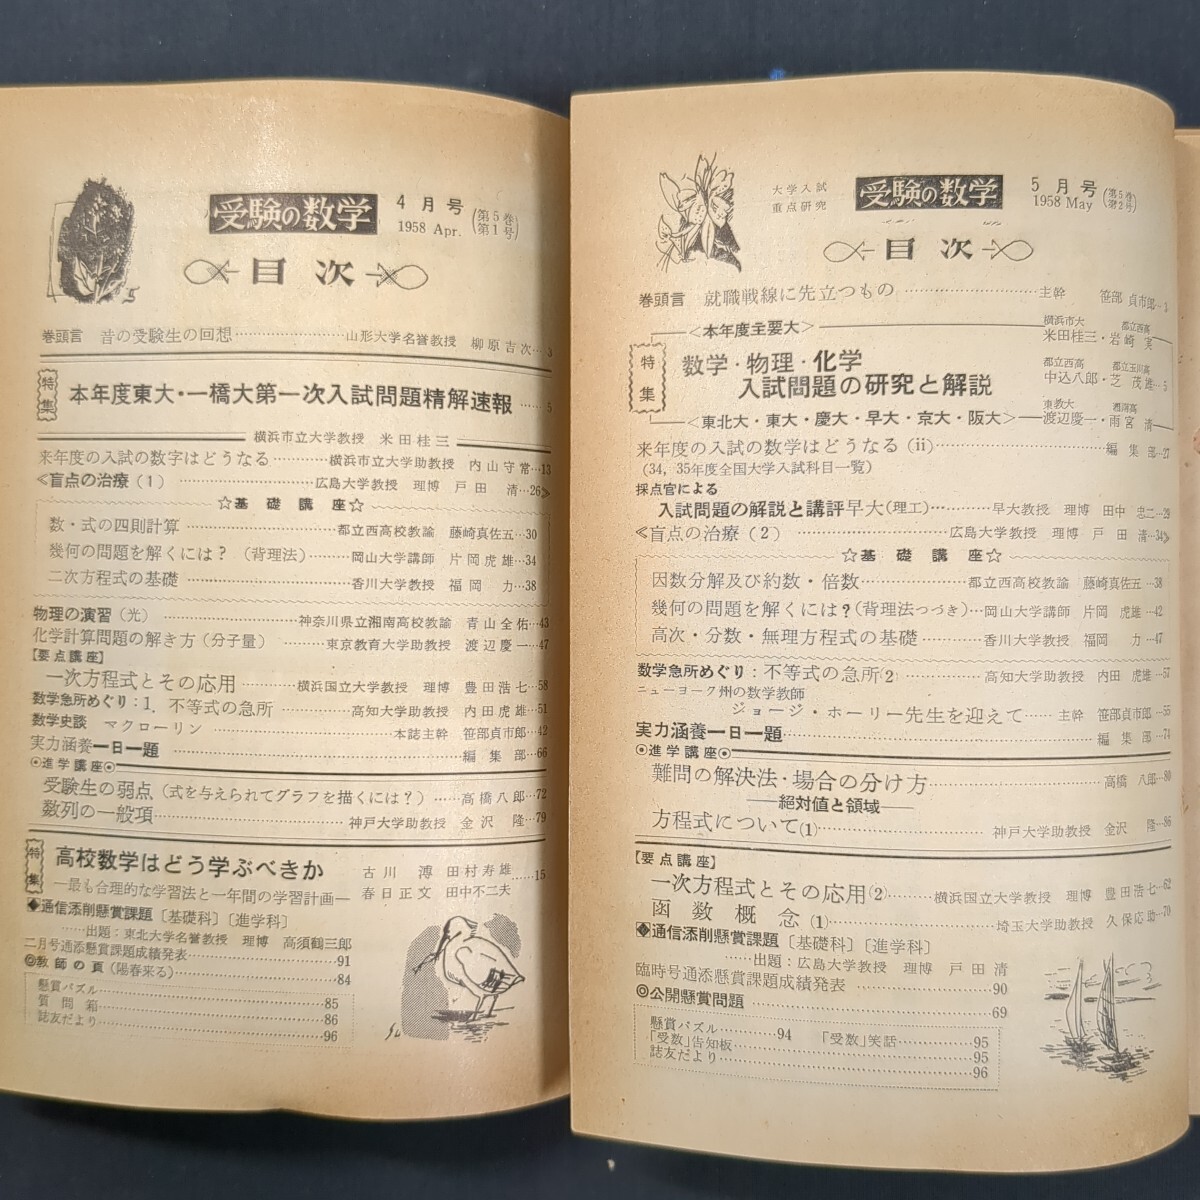 受験の数学
4月号
1958 Apr.
(第5巻第1号)
目次
巻頭言 昔の受験生の回想……山形大学名誉教授 柳原吉次…3
特集 本年度東大・一橋大第一次入試問題精解速報……5
横浜市立大学教授 米田桂三
来年度の入試の数字はどうなる……横浜市立大学助教授 内山守常…13
≪盲点の治療(1)……広島大学教授 理博 戸田 清…26≫
☆基礎講座☆
数・式の四則計算……都立西高校教諭 藤崎真佐五…30
幾何の問題を解くには?(背理法)……岡山大学講師 片岡虎雄…34
二次方程式の基礎……香川大学教授 福岡 力…38
物理の演習(光)……神奈川県立湘南高校教諭 青山全佑…43
化学計算問題の解き方(分子量)……東京教育大学助教授 渡辺慶一…47
【要点講座】
一次方程式とその応用……横浜国立大学教授 理博 豊田浩七…58
数学急所めぐり:1. 不等式の急所……高知大学助教授 内田虎雄…51
数学史談 マクローリン……本誌主幹 笹部貞市郎…42
実力涵養一日一題……編集部…66
◎進学講座◎
受験生の弱点(式を与えられてグラフを描くには?)……高橋八郎…72
数列の一般項……神戸大学助教授 金沢 隆…79
特集 高校数学はどう学ぶべきか
―最も合理的な学習法と一年間の学習計画―
古川 溥 田村寿雄
春日正文 田中不二夫……15
◆通信添削懸賞課題〔基礎科〕〔進学科〕
……出題:東北大学名誉教授 理博 高須鶴三郎
二月号通添懸賞課題成績発表……91
◎教師の頁(陽春来る)……84
懸賞パズル……85
質問箱……86
誌友だより……96
大学入試
重点研究
受験の数学
5月号
1958 May
(第5巻第2号)
目次
巻頭言 就職戦線に先立つもの……主幹 笹部貞市郎…3
<本年度主要大>
特集 数学・物理・化学
入試問題の研究と解説
<東北大・東大・慶大・早大・京大・阪大>
横浜市大 都立西高
米田桂三・岩崎 実
都立西高 都立玉川高
中込八郎・芝 茂雄…5
東教大 湘南高
渡辺慶一・雨宮 清
来年度の入試の数学はどうなる(ii)……編集部…27
(34, 35年度全国大学入試科目一覧)
採点官による
入試問題の解説と講評 早大(理工)……早大教授 理博 田中 忠二…29
≪盲点の治療(2)……広島大学教授 理博 戸田 清…34≫
☆基礎講座☆
因数分解及び約数・倍数……都立西高校教諭 藤崎真佐五…38
幾何の問題を解くには?(背理法つづき)…岡山大学講師 片岡 虎雄…42
高次・分数・無理方程式の基礎……香川大学教授 福岡 力…47
数学急所めぐり:不等式の急所(2)……高知大学助教授 内田 虎雄…57
ニューヨーク州の数学教師
ジョージ・ホーリー先生を迎えて……主幹 笹部貞市郎…55
実力涵養一日一題……編集部…74
◎進学講座◎
難問の解決法・場合の分け方……高橋 八郎…80
――絶対値と領域――
方程式について(1)……神戸大学助教授 金沢 隆…86
【要点講座】
一次方程式とその応用(2)……横浜国立大学教授 理博 豊田浩七…62
函数概念(1)……埼玉大学助教授 久保応助…70
◆通信添削懸賞課題〔基礎科〕〔進学科〕
……出題:広島大学教授 理博 戸田 清
臨時号通添懸賞課題成績発表……90
◎公開懸賞問題……69
懸賞パズル……94 「受数」笑話……95
「受数」告知板……95
誌友だより……96